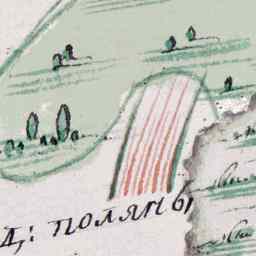 Д: ПОЛЯНЫ